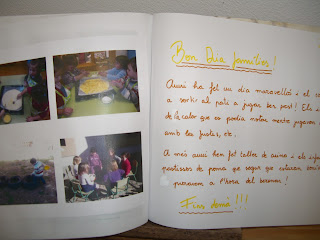 Bon Dia famílies!
Avui ha fet un dia meravellós i el
a sortir al pati a jugar ben post! Els
de la calor que es podia notar mente jugaven
amb les fustes, etc.
A més avui hem fet taller de cuina i els
pastissos de poma que segur que estaran
per a l'hora del berenar!
Fins demà!!!